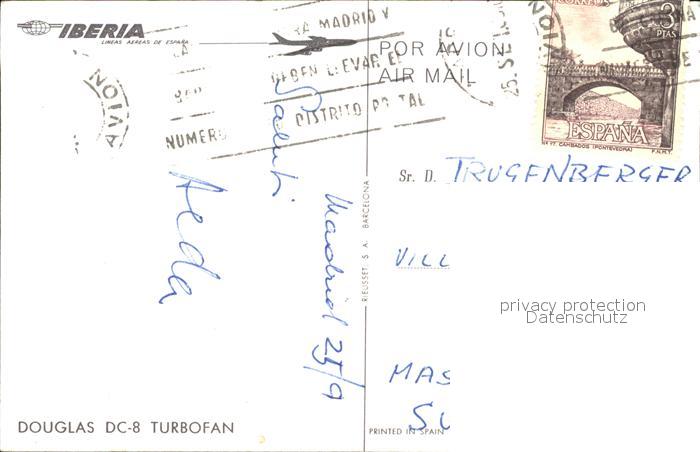 IBERIA
LINEAS AEREAS DE ESPAÑA
MADRID Y
DEBEN LLEVAR EL
DISTRITO POSTAL
NUMERO
AVION
POR AVION
AIR MAIL
CORREOS
3
PTAS
ESPAÑA
Nº 17. CAMBADOS (PONTEVEDRA)
F.N.M.T.
Saluti
Madrid 25/9
Aeda
Sr. D. TRUGENBERGER
VILL
MAS
SU
privacy protection
Datenschutz
RIEUSSET S. A. BARCELONA
DOUGLAS DC-8 TURBOFAN
PRINTED IN SPAIN